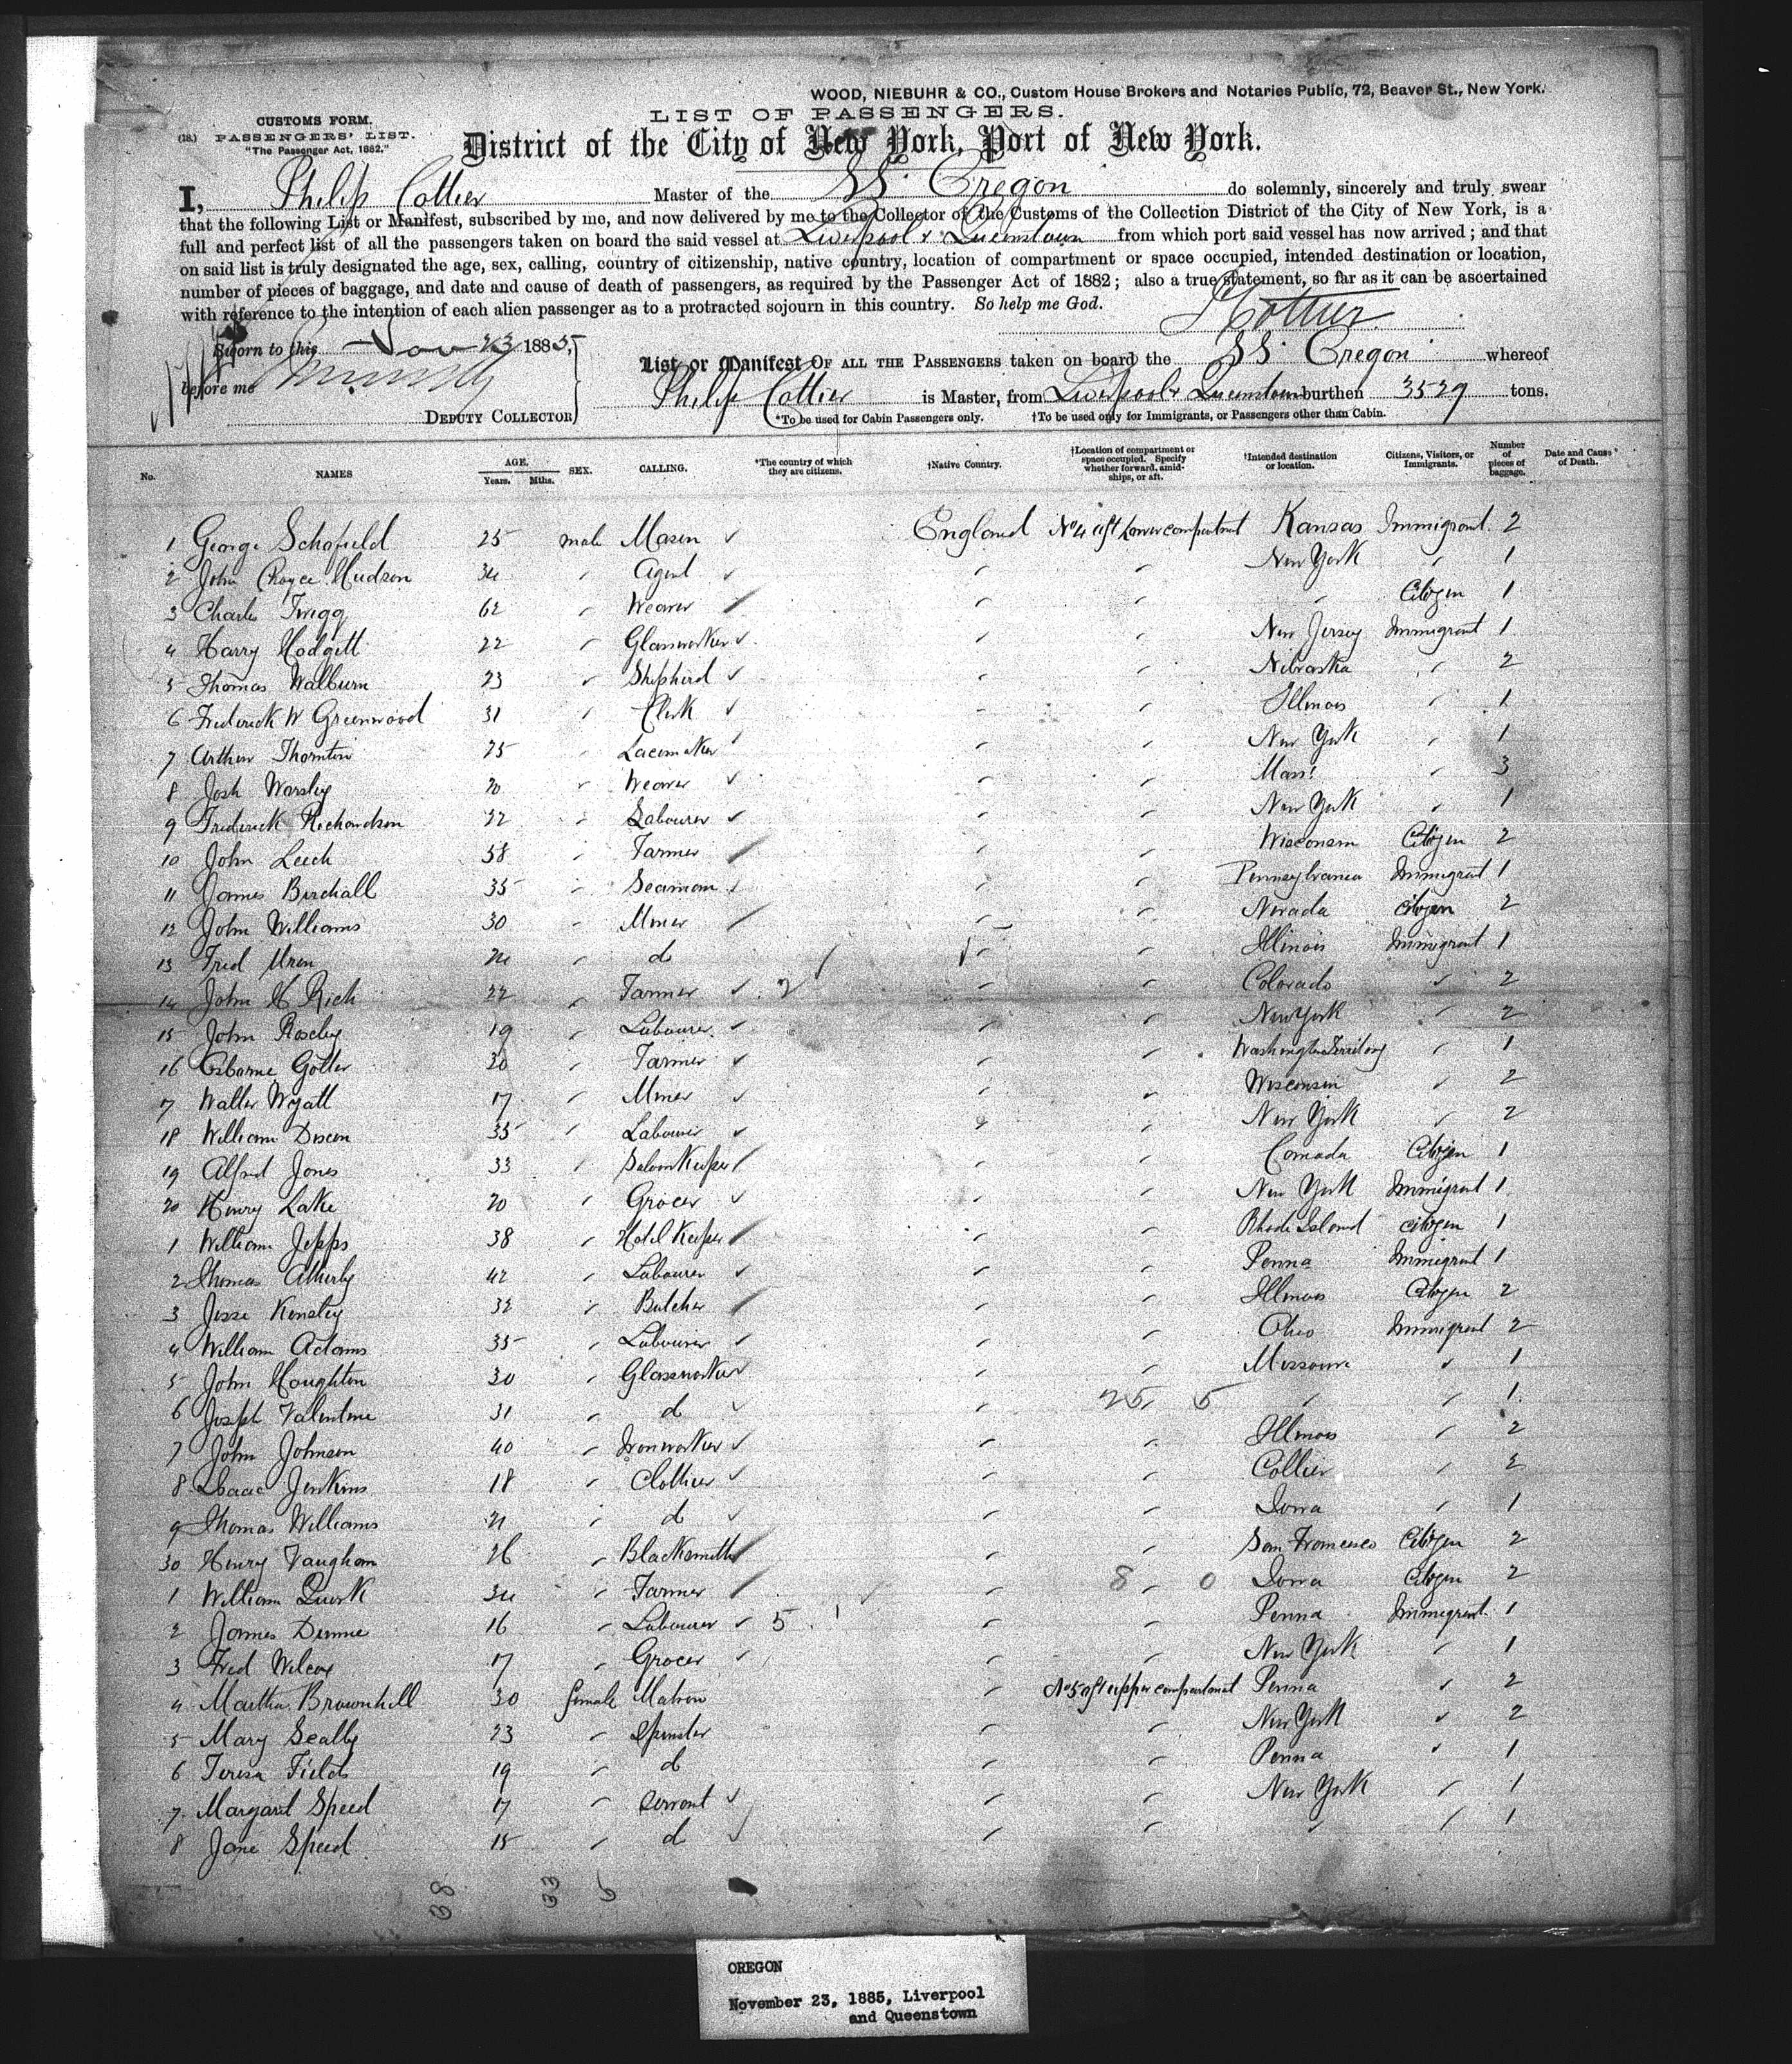 WOOD, NIEBUHR & CO., Custom House Brokers and Notaries Public, 72, Beaver St., New York.
LIST OF PASSENGERS.
CUSTOMS FORM.
(18.) PASSENGERS' LIST.
"The Passenger Act, 1882."
District of the City of New York, Port of New York.
I, Philip Cottier Master of the SS. Oregon do solemnly, sincerely and truly swear
that the following List or Manifest, subscribed by me, and now delivered by me to the Collector of the Customs of the Collection District of the City of New York, is a
full and perfect list of all the passengers taken on board the said vessel at Liverpool & Queenstown from which port said vessel has now arrived; and that
on said list is truly designated the age, sex, calling, country of citizenship, native country, location of compartment or space occupied, intended destination or location,
number of pieces of baggage, and date and cause of death of passengers, as required by the Passenger Act of 1882; also a true statement, so far as it can be ascertained
with reference to the intention of each alien passenger as to a protracted sojourn in this country. So help me God.
Cottier
Sworn to this Nov 23 1885,
before me
DEPUTY COLLECTOR
List or Manifest OF ALL THE PASSENGERS taken on board the SS. Oregon whereof
Philip Cottier is Master, from Liverpool & Queenstown burthen 3529 tons.
*To be used for Cabin Passengers only. †To be used only for Immigrants, or Passengers other than Cabin.
No. NAMES AGE. Years. Mths. SEX. CALLING. *The country of which they are citizens. †Native Country. †Location of compartment or space occupied. Specify whether forward, amidships, or aft. †Intended destination or location. Citizens, Visitors, or Immigrants. Number of pieces of baggage. Date and Cause of Death.
1 George Schofield 25 male Mason England No 4 aft Lower compartment Kansas Immigrant 2
2 John Royce Hudson 34 Agent New York 1
3 Charles Twigg 62 Weaver Citizen 1
4 Harry Hodgett 22 Glassworker New Jersey Immigrant 1
5 Thomas Walburn 23 Shepherd Nebraska 2
6 Frederick W Greenwood 31 Clerk Illinois 1
7 Arthur Thornton 25 Lacemaker New York 1
8 Josh Worsley 20 Weaver Mass: 3
9 Frederick Richardson 32 Labourer New York 1
10 John Leech 58 Farmer Wisconsin Citizen 2
11 James Birchall 35 Seaman Pennsylvania Immigrant 1
12 John Williams 30 Miner Nevada Citizen 2
13 Fred Uren do Illinois Immigrant 1
14 John H Rich 22 Farmer 2 Colorado 2
15 John Roseley 19 Labourer New York 2
16 Osborne Gotter 30 Farmer Washington Territory 1
17 Walter Wyatt 17 Miner Wisconsin 2
18 William Dixon 35 Labourer New York 2
19 Alfred Jones 33 Saloon Keeper Canada Citizen 1
20 Henry Lake 20 Grocer New York Immigrant 1
1 William Jepps 38 Hotel Keeper Rhode Island Citizen 1
2 Thomas Atherly 42 Labourer Penna Immigrant 1
3 Jesse Kensley 32 Butcher Illinois Citizen 2
4 William Adams 35 Labourer Ohio Immigrant 2
5 John Houghton 30 Glassworker Missouri 1
6 Joseph Valentine 31 d 25 5 1
7 John Johnson 40 Ironworker Illinois 2
8 Isaac Jenkins 18 Clothier Collier 2
9 Thomas Williams 21 d Iowa 1
30 Henry Vaughan 26 Blacksmith San Francisco Citizen 2
1 William Quirk 34 Farmer 8 0 Iowa Citizen 2
2 James Dunne 16 Labourer 5 Penna Immigrant 1
3 Fred Wilcox 17 Grocer New York 1
4 Martha Brownhill 30 female Matron No 5 aft upper compartment Penna 2
5 Mary Scally 23 Spinster New York 2
6 Teresa Fields 19 d Penna 1
7 Margaret Speed 17 Servant New York 1
8 Jane Speed 15 d 1
38 33 5
OREGON
November 23, 1885, Liverpool
and Queenstown